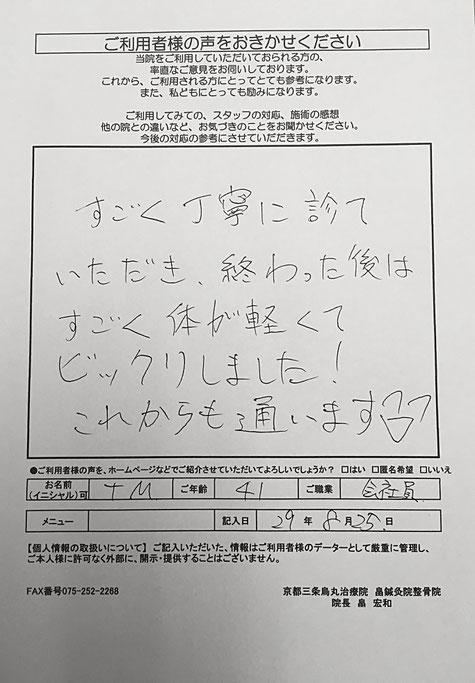 ご利用者様の声をおきかせください
当院をご利用していただいておられる方の、
率直なご意見をお伺いしております。
これから、ご利用される方にとってとても参考になります。
また、私どもにとっても励みになります。
ご利用してみての、スタッフの対応、施術の感想
他の院との違いなど、お気づきのことをお聞かせください。
今後の対応の参考にさせていただきます。
すごく丁寧に診て
いただき、終わった後は
すごく体が軽くて
ビックリしました!
これからも通います♡
●ご利用者様の声を、ホームページなどでご紹介させていただいてよろしいでしょうか? □はい □匿名希望 □いいえ
お名前(イニシャル)可 TM ご年齢 41 ご職業 会社員
メニュー 記入日 29 年 8 月 25 日
【個人情報の取扱いについて】 ご記入いただいた、情報はご利用者様のデーターとして厳重に管理し、
ご本人様に許可なく外部に、開示・提供することはございません。
FAX番号075-252-2268 京都三条烏丸治療院 畠鍼灸院整骨院
院長 畠 宏和